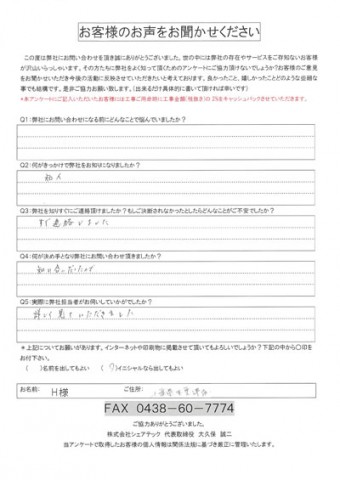 お客様のお声をお聞かせください
この度は弊社にお問い合わせを頂き誠にありがとうございました。世の中には弊社の存在やサービスをご存知ないお客様
が沢山いらっしゃいます。その方たちに弊社をよく知って頂くためのアンケートにご協力頂けないでしょうか?お客様のご意見
をお聞かせいただき今後の活動に反映させていただきたいと考えております。良かったこと、嬉しかったことどのような些細な
事でも結構です。是非ご協力お願い致します。(出来るだけ具体的に書いて頂ければ幸いです)
*本アンケートにご記入いただいたお客様には工事ご用命時に工事金額(税抜き)の2%をキャッシュバックさせていただきます。
Q1:弊社にお問い合わせになる前にどんなことで悩んでいましたか?
Q2:何がきっかけで弊社をお知りになりましたか?
知人
Q3:弊社を知りすぐにご連絡頂けましたか?もしご決断されなかったとしたらどんなことがご不安でしたか?
すぐ連絡しました
Q4:何が決め手となり弊社にお問い合わせ頂きましたか?
知り合いだったので
Q5:実際に弊社担当者がお伺いしていかがでしたか?
詳しく見ていただきました
*上記についてお願いがあります。インターネットや印刷物に掲載させて頂いてもよろしいでしょうか?下記の中から〇印を
お付け下さい。
( )名前を出してもよい ( )イニシャルなら出してもよい
お名前: H様 ご住所:
FAX 0438-60-7774
ご協力ありがとうございました。
株式会社シェアテック 代表取締役 大久保 誠二
当アンケートで取得したお客様の個人情報は関係法規に基づき厳正に管理いたします。